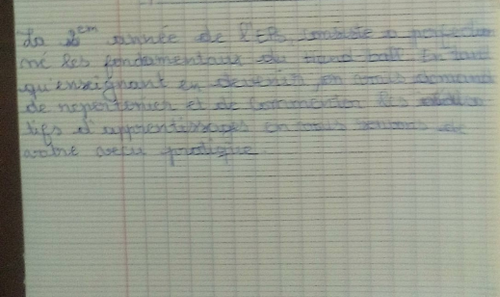 La 2em année de l'EPS, consiste a perfection
né les fondamentaux du Hand ball. En tant
qu'enseignant en devenir, on vous demande
de repertorier et de commenter les
tifs d'apprentissages en vous
votre vecu pratique.